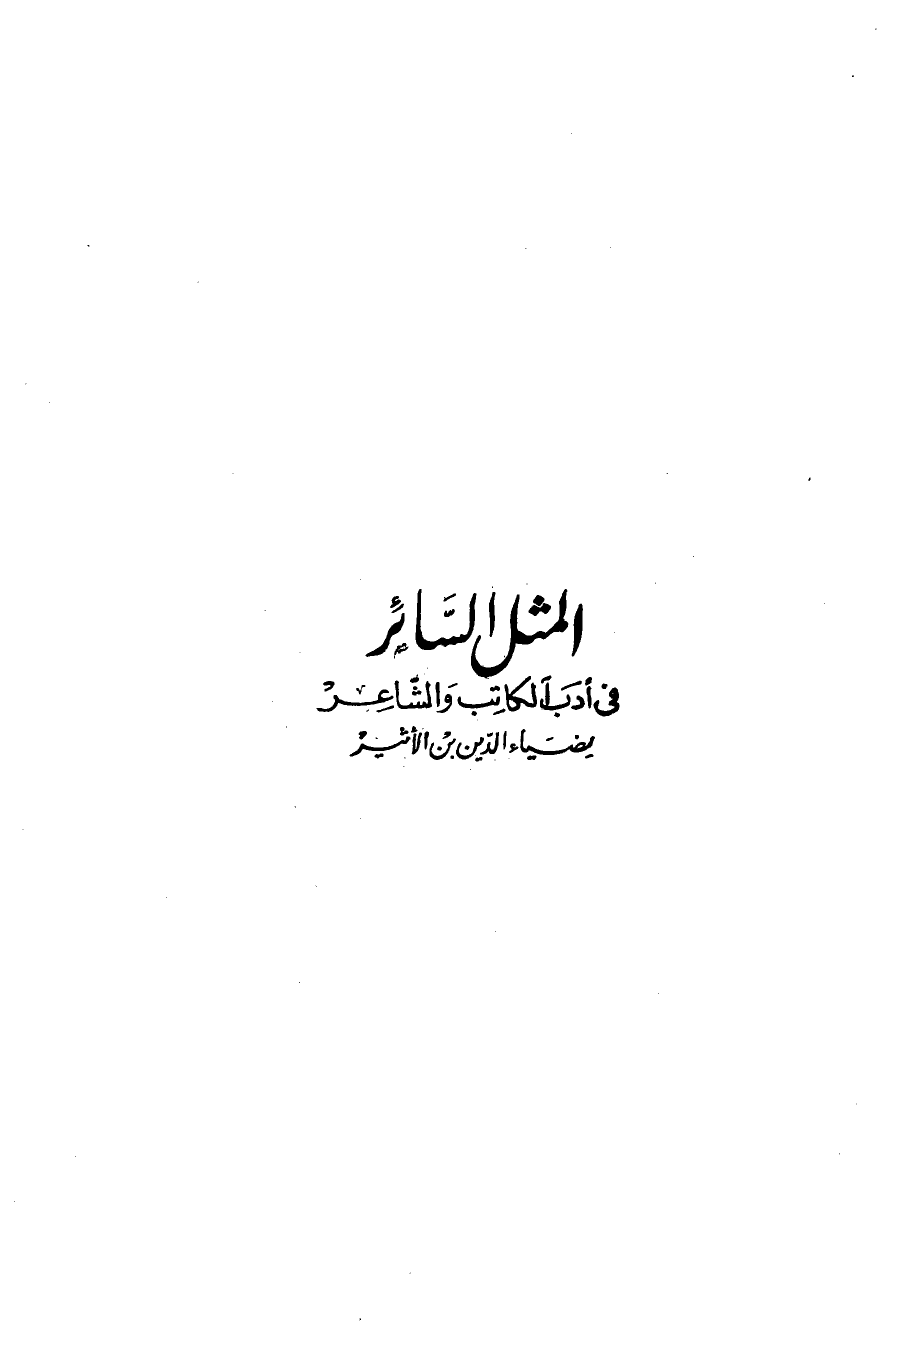 المثل السَّائِر
فى أدَبِ الكاتِبِ وَالشَّاعِرْ
لِضيَاء الدّين بنْ الأثيرْ